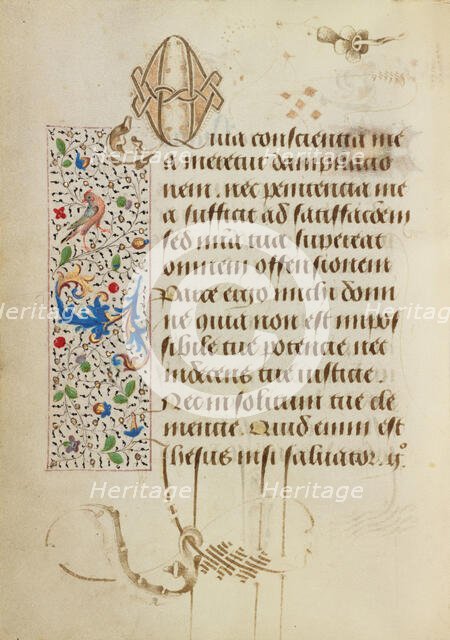 Quia conscientia me
a meretur dampnacio
nem. nec penitencia me
a sufficit ad satisfaccõem
sed mĩa tua superat
omnem offensionem
Parce ergo michi domi
ne quia non est impos
sibile tue potencie nec
indecens tue iusticie
Nec insolitum tue cle
mencie. Quid enim est
Ihesus nisi saluator. gº
Heritage
Heritage
Heritage
Heritage
Heritage
Heritage
Heritage